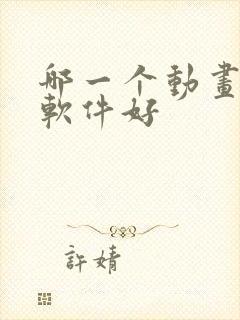 哪一个動畫
軟件好
許婧